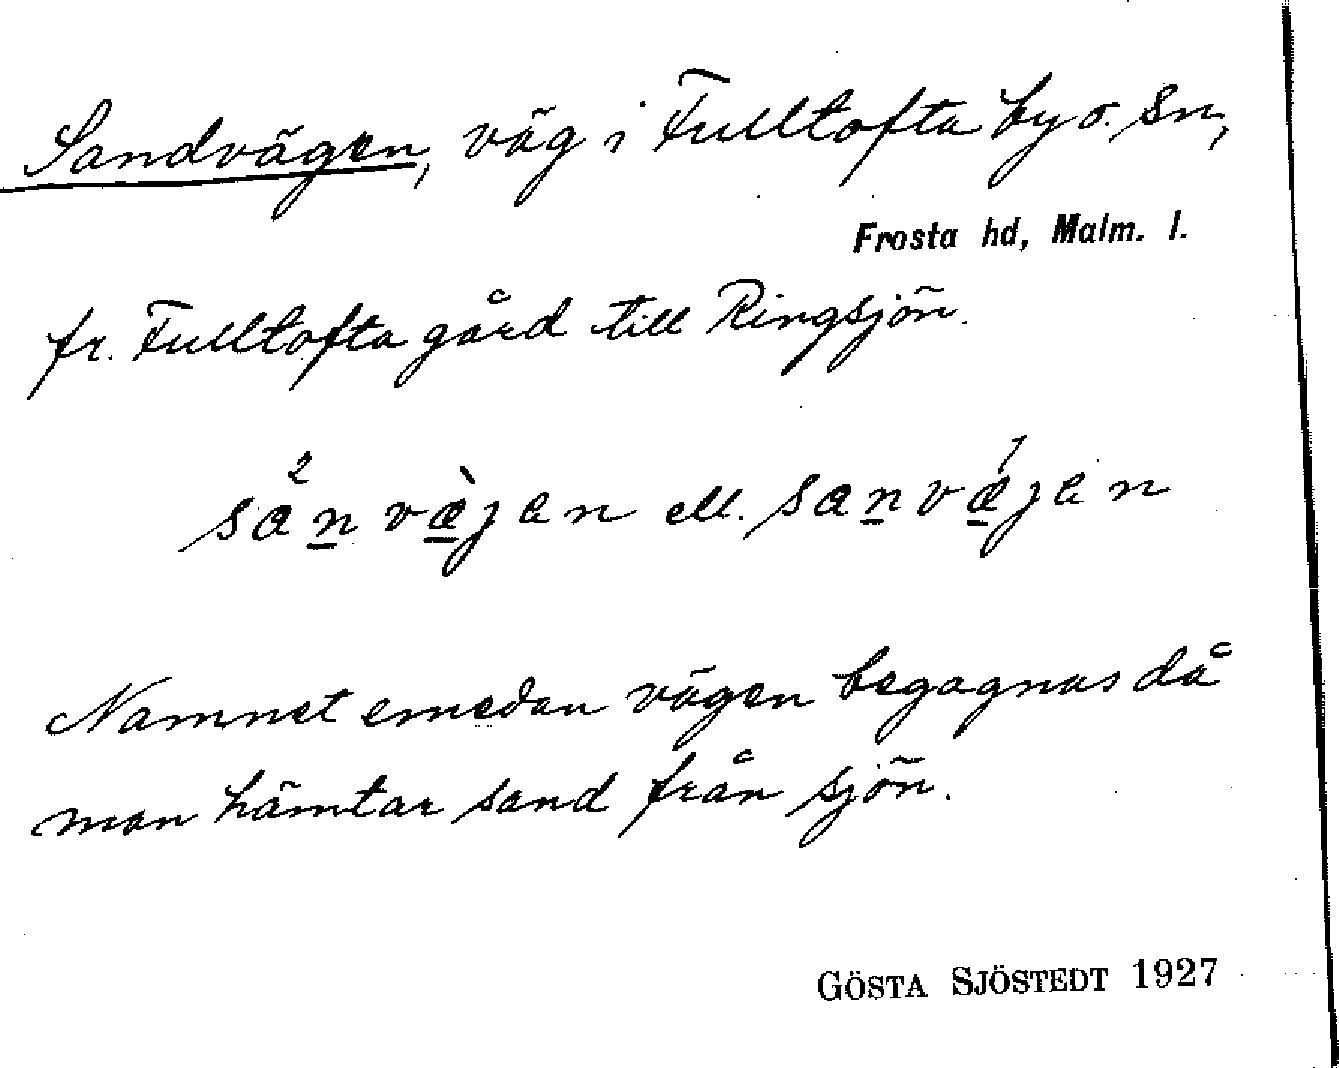 Sandvägen, väg i Fulltofta by o. sn,
Frosta hd, Malm. l.
fr. Fulltofta gård till Ringsjön.
sa²n væ̀jen ell. sanvæ¹jen
Namnet emedan vägen begagnas då
man hämtar sand från sjön.
GÖSTA SJÖSTEDT 1927